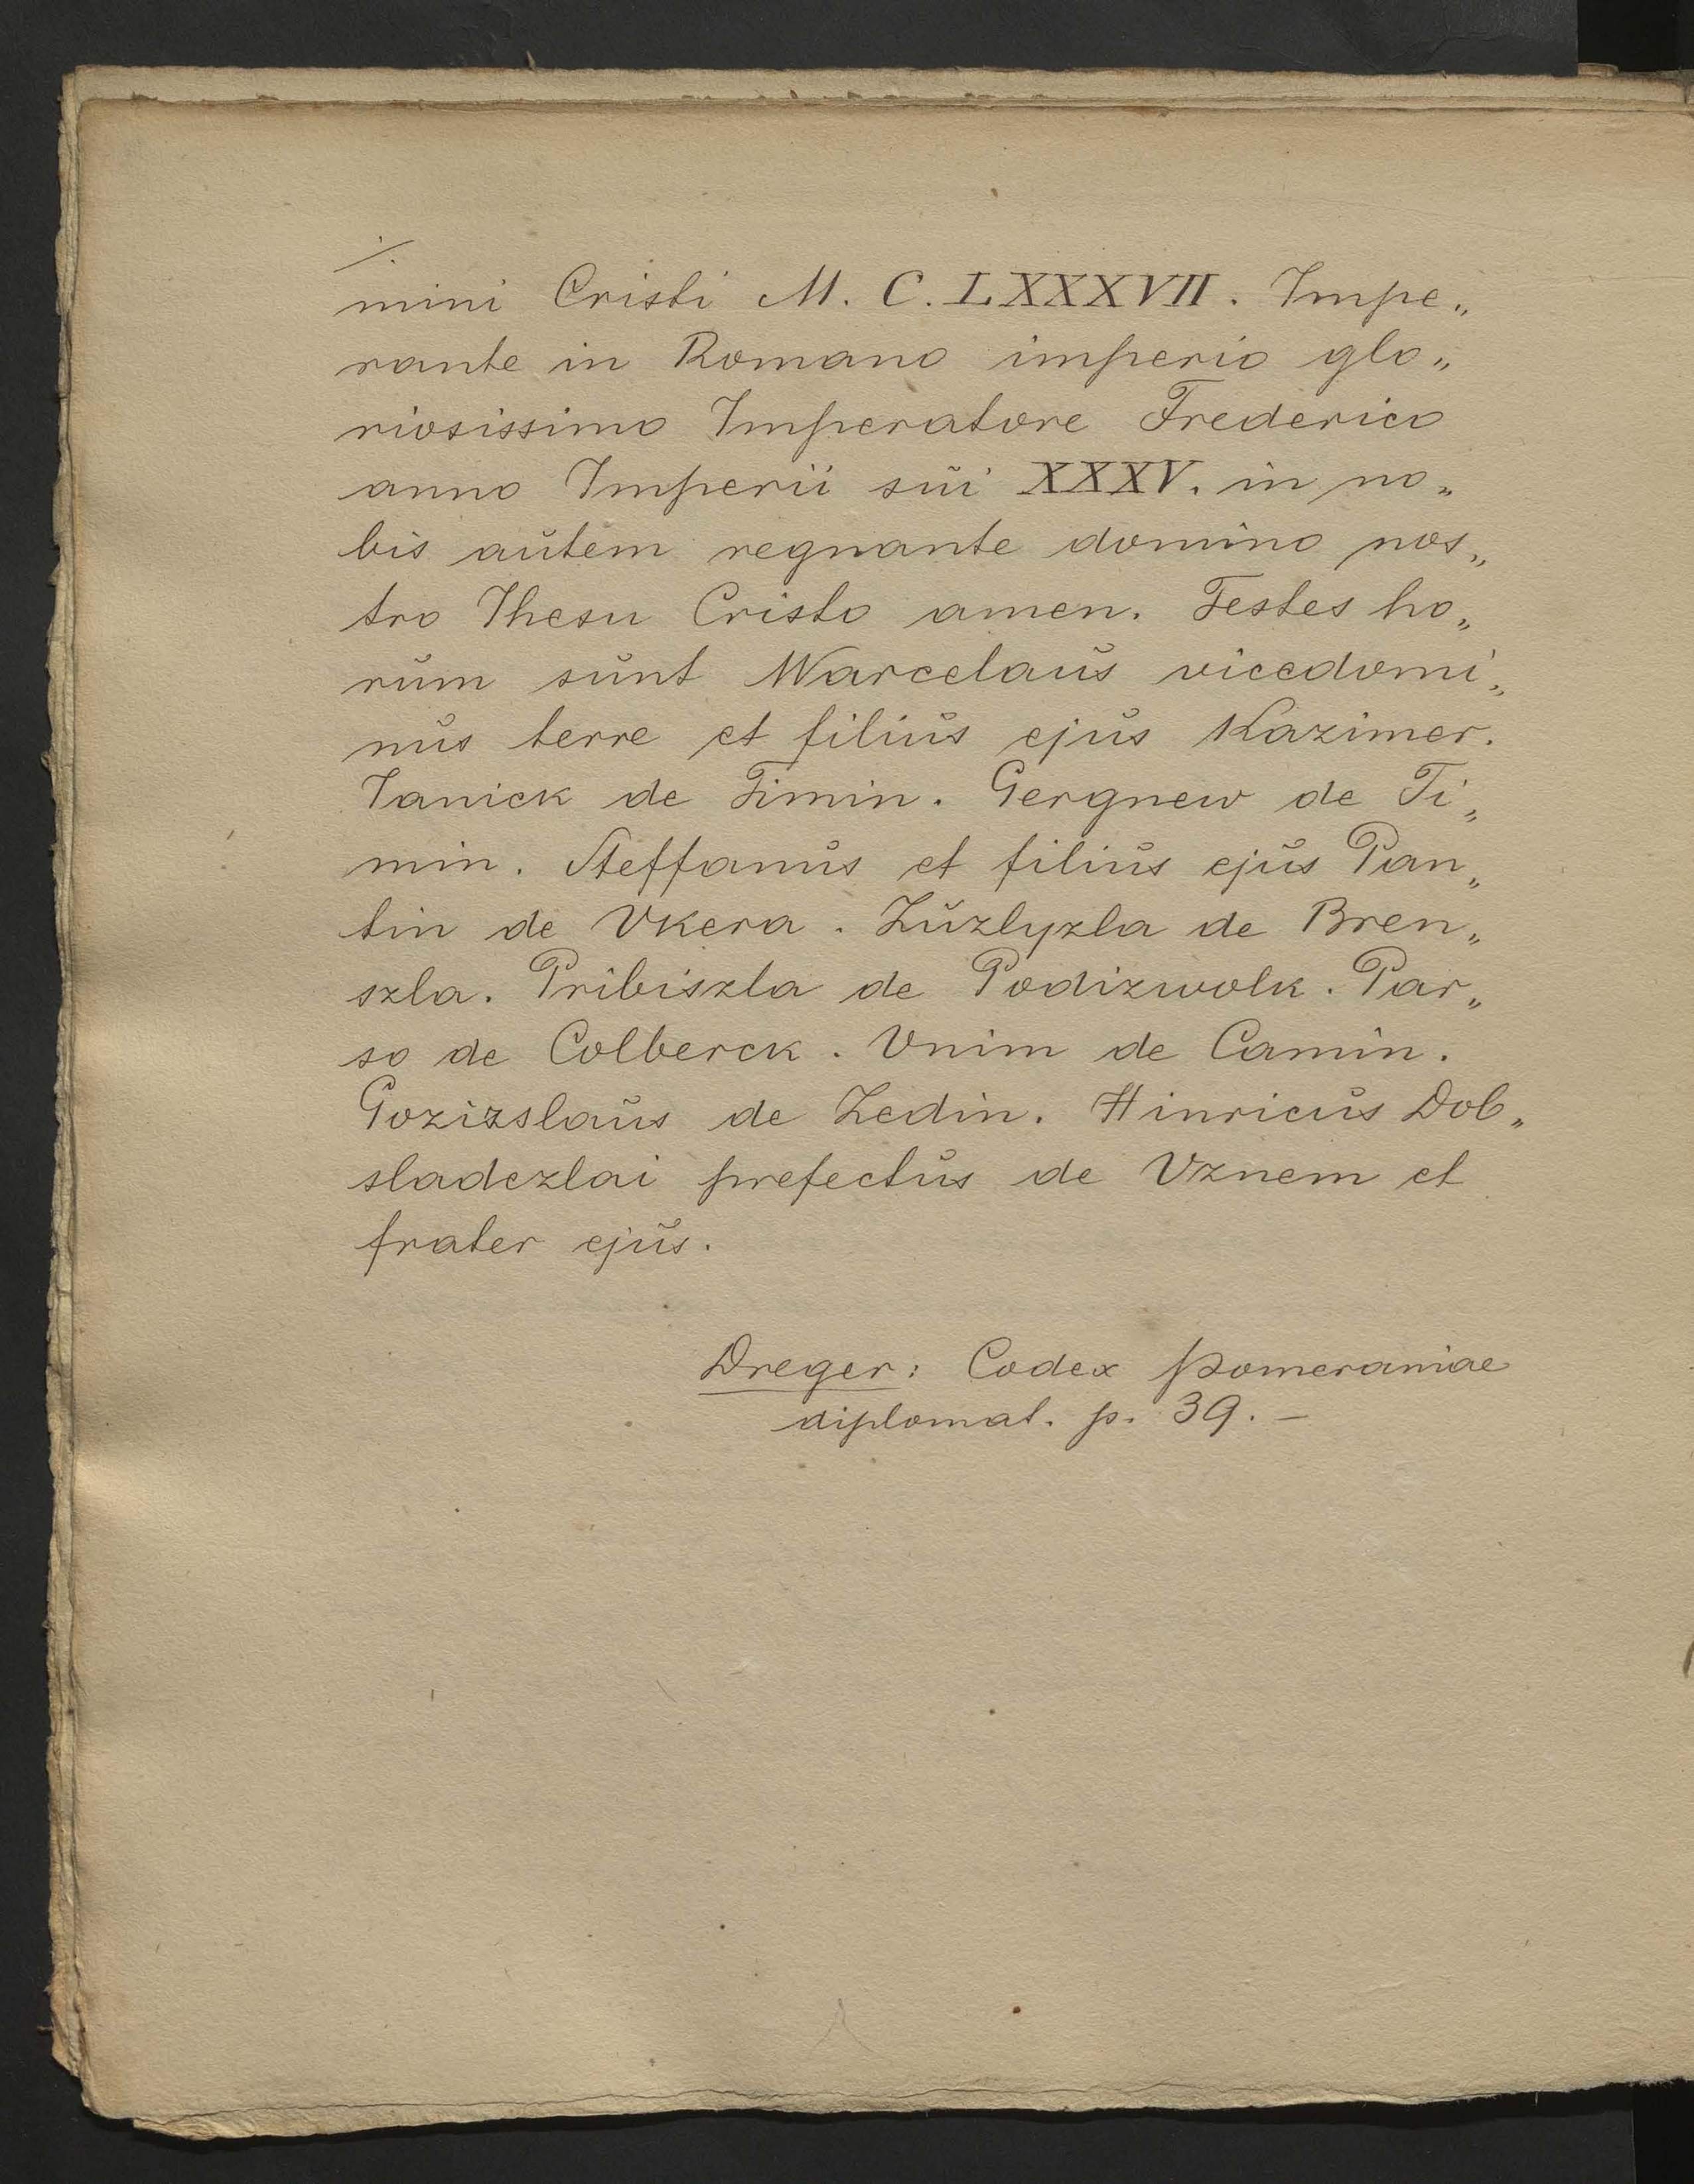 ./.
mini Cristi M. C. LXXXVII. Impe„
rante in Romano imperio glo„
riosissimo Imperatore Frederico
anno Imperii sŭi XXXV. in no„
bis aŭtem regnante domino nos„
tro Ihesu Cristo amen. Testes ho„
rŭm sŭnt Warcelaŭs vicedomi„
nŭs terre et filiŭs ejŭs Kazimer.
Janick de Timin. Gergnew de Ti„
min. Steffanŭs et filiŭs ejŭs Pan„
tin de Vkera. Zŭzlyzla de Bren„
szla. Pribiszla de Podizwolk. Par„
so de Colberck. Vnim de Camin.
Gozizslaŭs de Zedin. Hinricŭs Dob„
sladezlai prefectŭs de Vznem et
frater ejŭs.
Dreger: Codex Pomeraniae
diplomat. p. 39. –